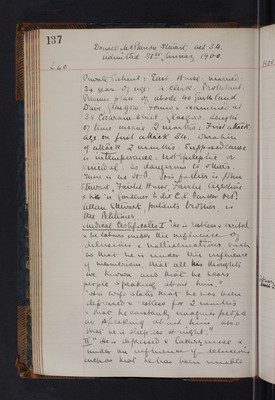 137
Donald McPherson Stewart, aet 34.
admitted 31st January 1900
Private Patient: East House. married:
34 years of age: a clerk: Protestant.
Previous place of abode 40 Garthland
Drive Glasgow: found & examined at
38 Cochrane Street, Glasgow. Length
of time insane 2 months; First attack.
age on first attack 34. Duration
of attack 2 months. Supposed cause
is intemperance: not epileptic or
suicidal is dangerous to others.
There is no H.P. His father is
Stewart, Fairlie House, Fairlie Ayrshire
Allan Stewart, patient's brother, is
the Petitioner.
Medical Certificates I "He is restless & excited
& he labours under the influence of
delusions & hallucinations
so that he is under the influence
of mesmerism, that all his thoughts
are known and that he hears
people speaking about him."
"His wife states that he has been
depressed & restless for 2 months
& that he constantly imagines people
are speaking about him also
that he is sleepless at night."
II "He is depressed & lachrymose &
under the influence of delusions
that he has been unable